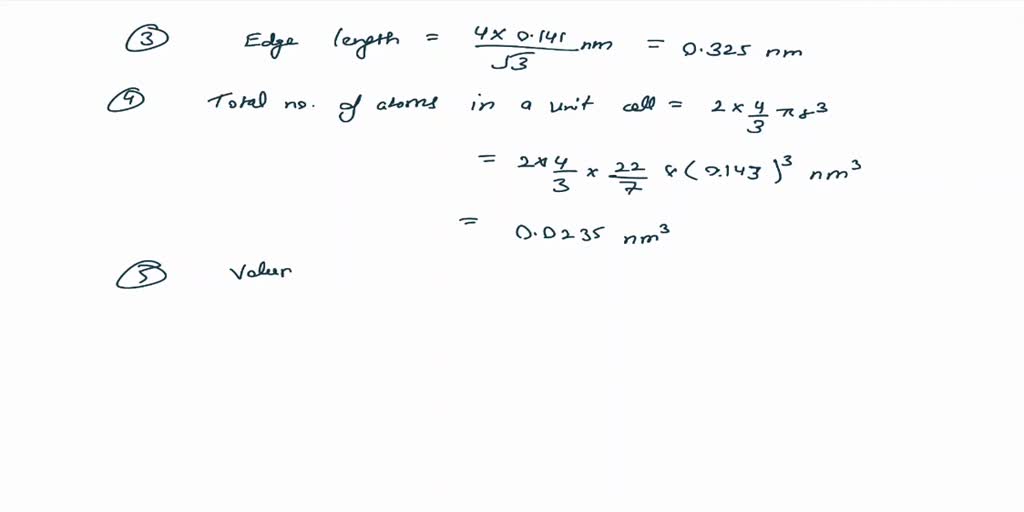 ③ Edge length = 4 × 0.141 / √3 nm = 0.325 nm
④ Total no. of atoms in a unit cell = 2 × 4/3 πr³
= 2 × 4/3 × 22/7 × (0.143)³ nm³
= 0.0235 nm³
⑤ Volum